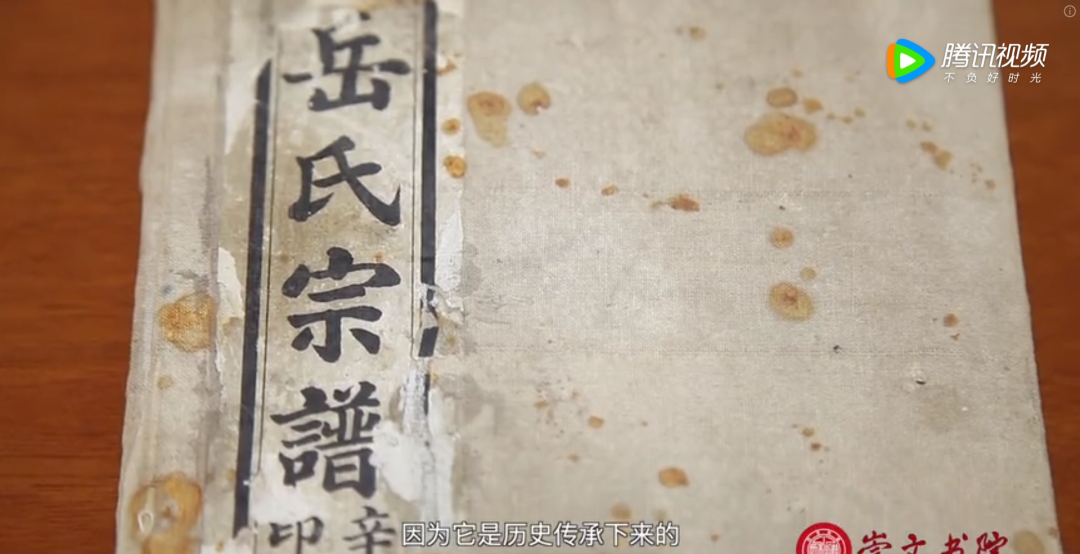 腾讯视频
不负好时光
岳氏宗譜
辛
印
因为它是历史传承下来的
崇文书院